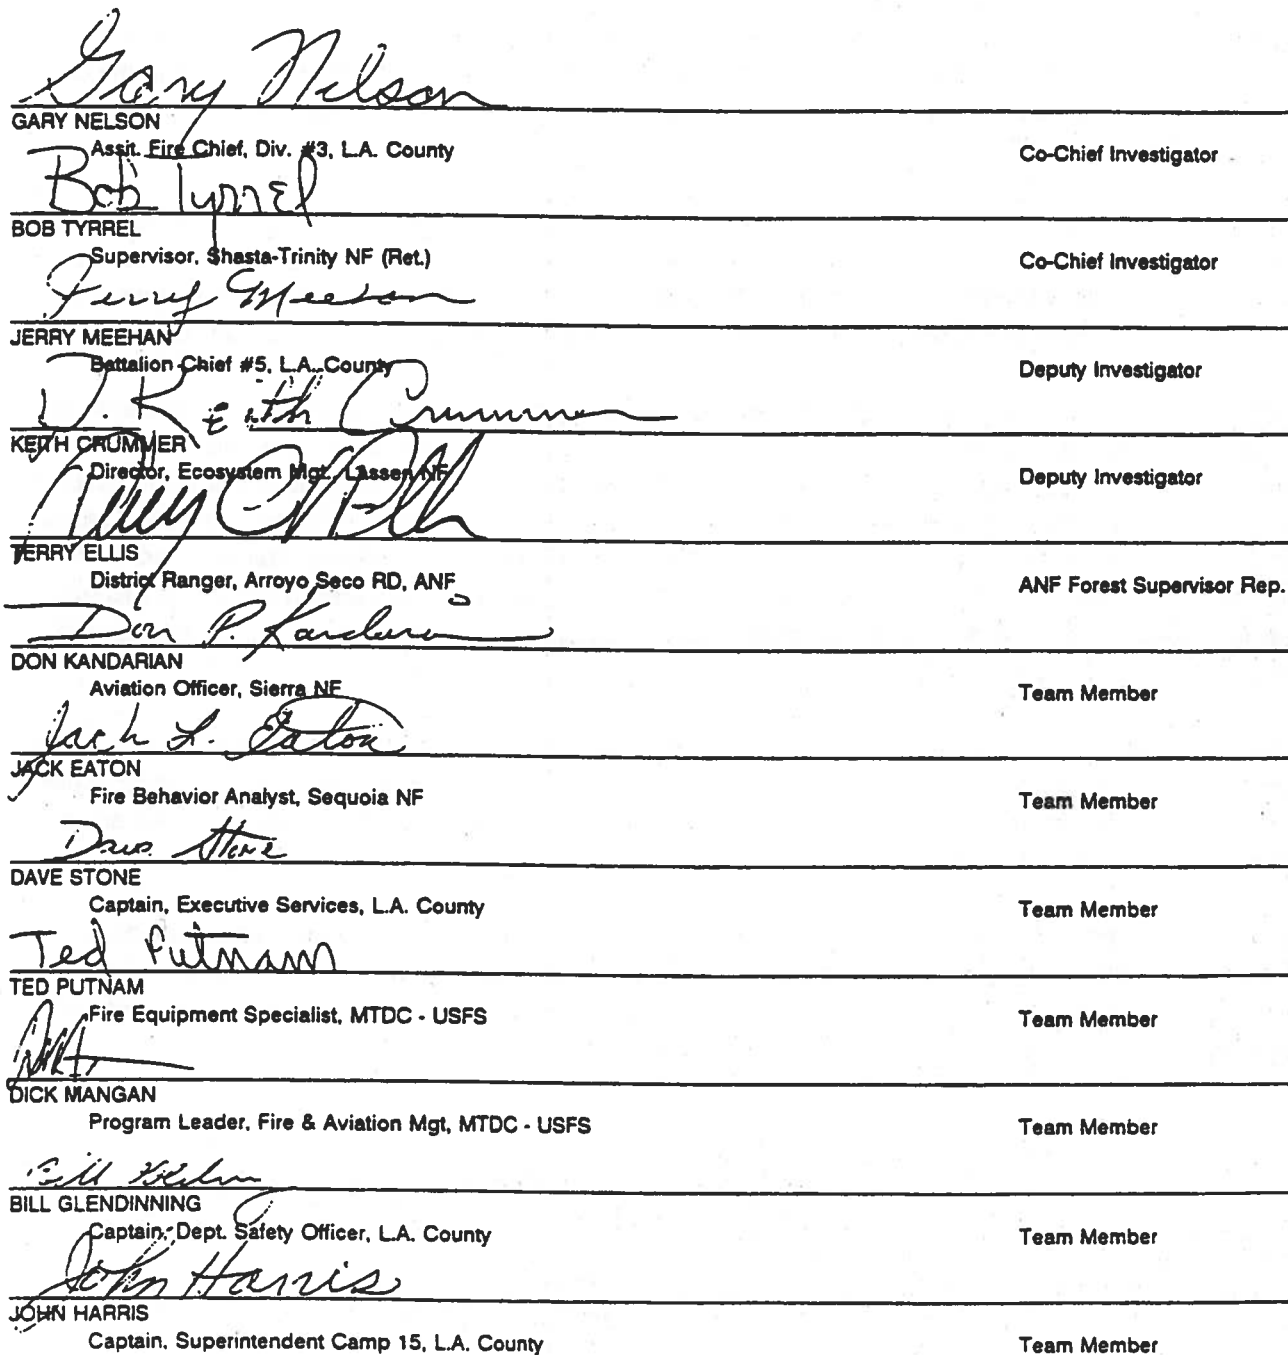 Gary Nelson
GARY NELSON
Assit. Fire Chief, Div. #3, L.A. County Co-Chief Investigator
Bob Tyrrel
BOB TYRREL
Supervisor, Shasta-Trinity NF (Ret.) Co-Chief Investigator
Jerry Meehan
JERRY MEEHAN
Battalion Chief #5, L.A. County Deputy Investigator
D. Keith Crummer
KEITH CRUMMER
Director, Ecosystem Mgt. Lassen NF Deputy Investigator
TERRY ELLIS
District Ranger, Arroyo Seco RD, ANF ANF Forest Supervisor Rep.
Don P. Kandarian
DON KANDARIAN
Aviation Officer, Sierra NF Team Member
Jack L. Eaton
JACK EATON
Fire Behavior Analyst, Sequoia NF Team Member
Dave Stone
DAVE STONE
Captain, Executive Services, L.A. County Team Member
Ted Putnam
TED PUTNAM
Fire Equipment Specialist, MTDC - USFS Team Member
DICK MANGAN
Program Leader, Fire & Aviation Mgt, MTDC - USFS Team Member
Bill
BILL GLENDINNING
Captain, Dept. Safety Officer, L.A. County Team Member
John Harris
JOHN HARRIS
Captain, Superintendent Camp 15, L.A. County Team Member